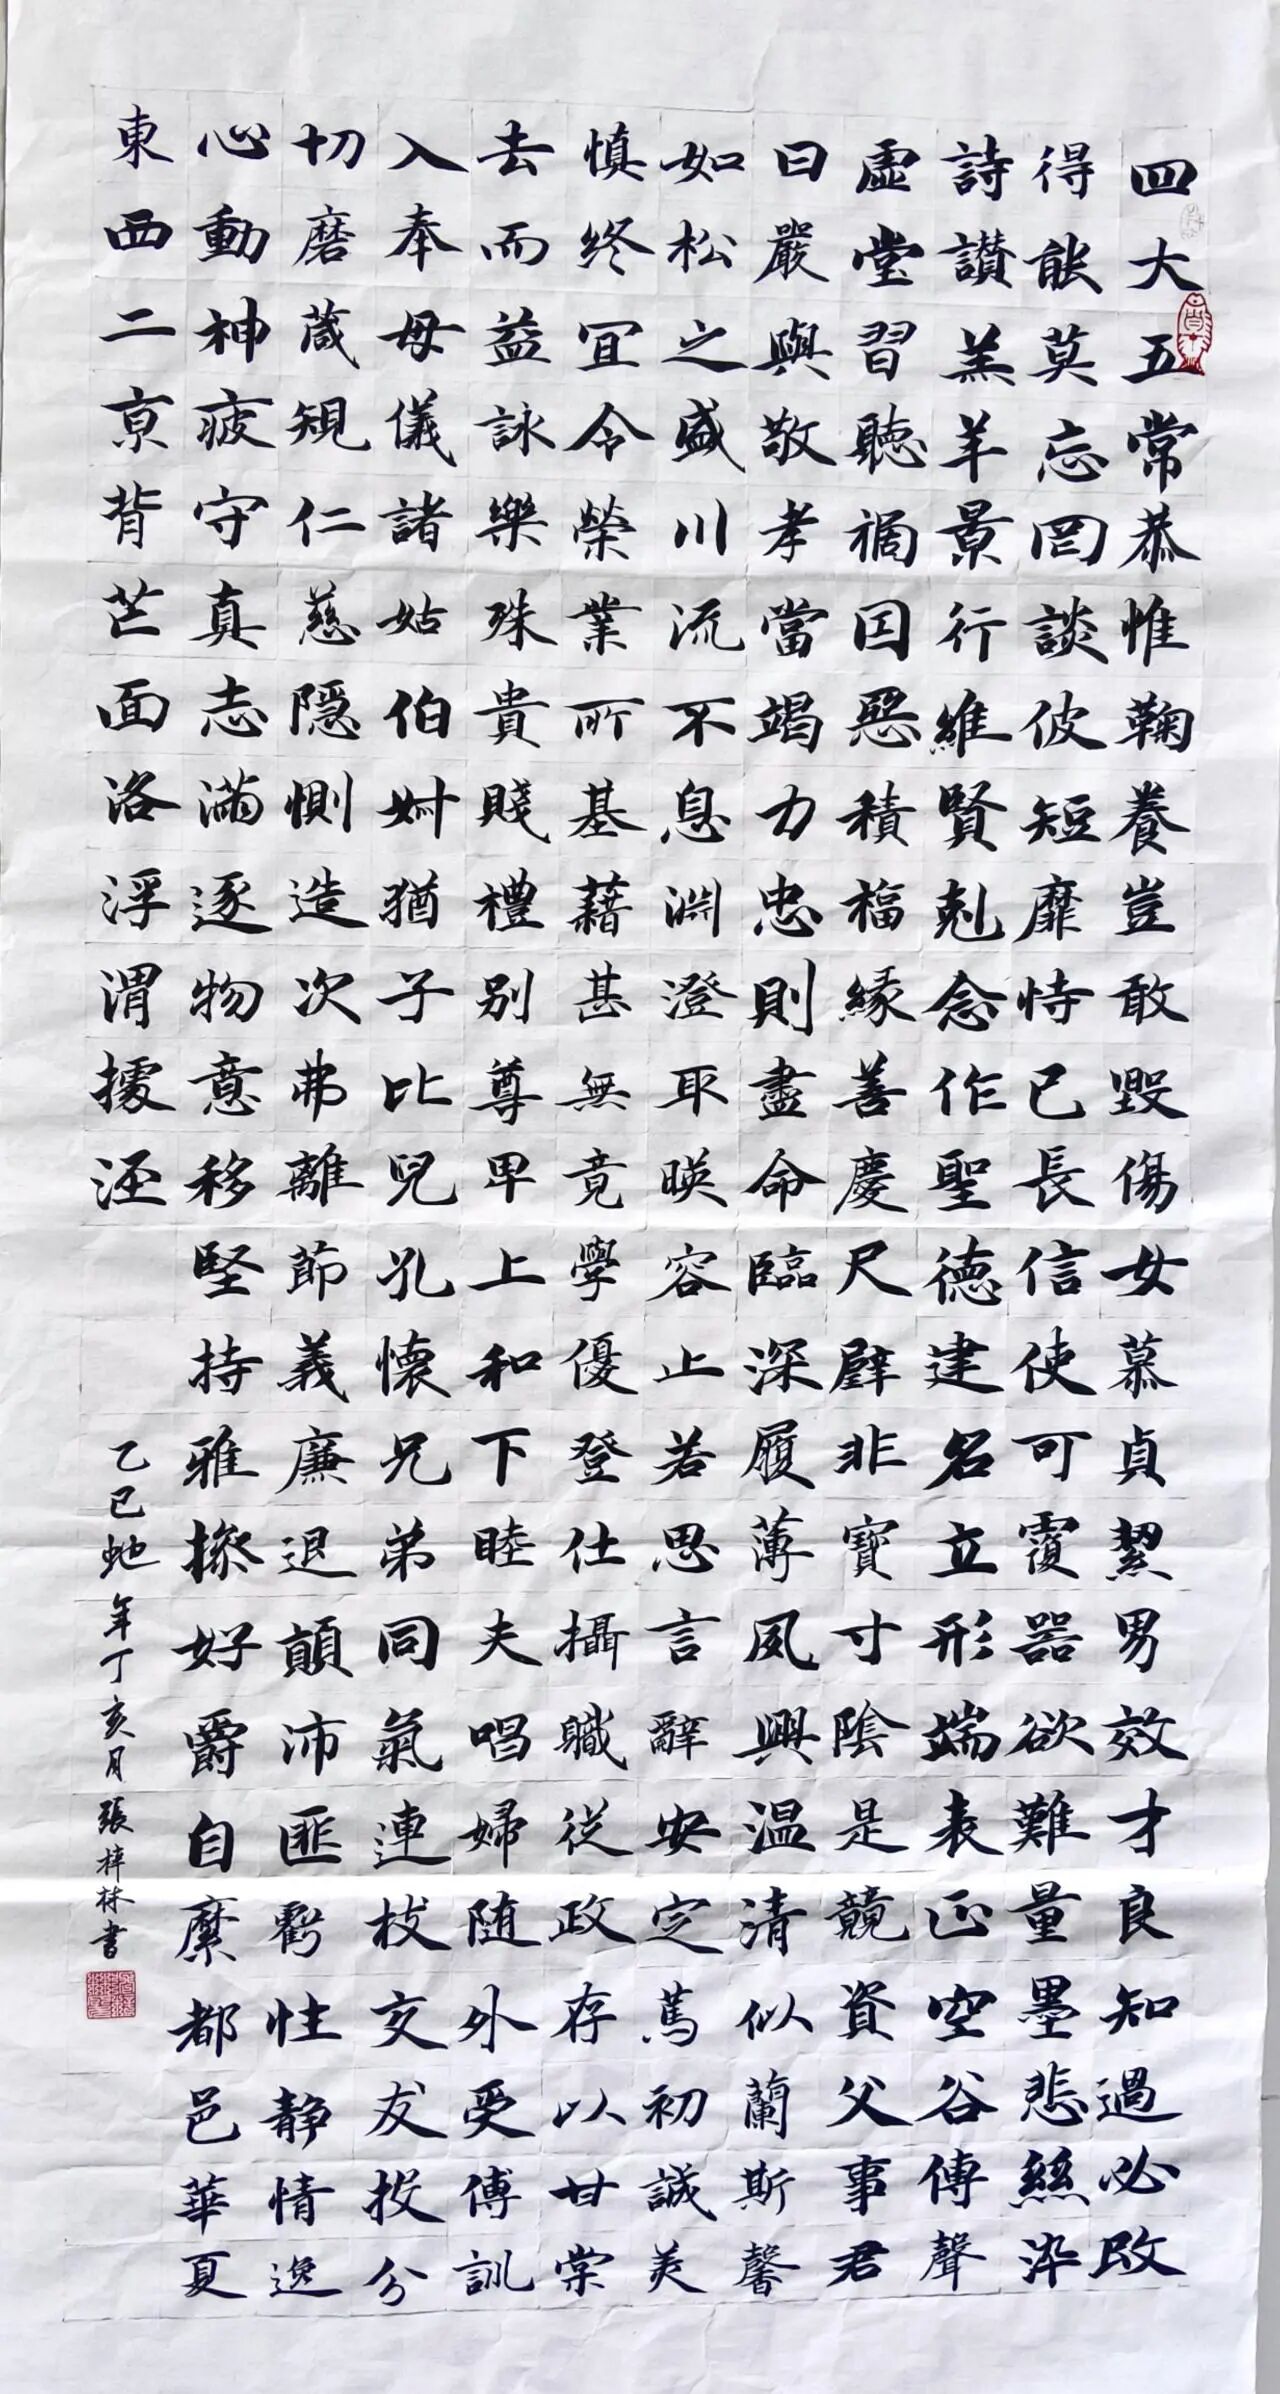 四大五常恭惟鞠養豈敢毀傷女慕貞絜男效才良知過必改
得能莫忘罔談彼短靡恃己長信使可覆器欲難量墨悲絲染
詩讚羔羊景行維賢剋念作聖德建名立形端表正空谷傳聲
虛堂習聽禍因惡積福緣善慶尺璧非寶寸陰是競資父事君
曰嚴與敬孝當竭力忠則盡命臨深履薄夙興温清似蘭斯馨
如松之盛川流不息淵澄取暎容止若思言辭安定篤初誠美
慎終宜令榮業所基藉甚無竟學優登仕攝職從政存以甘棠
去而益詠樂殊貴賤禮別尊卑上和下睦夫唱婦随外受傅訓
入奉母儀諸姑伯叔猶子比兒孔懷兄弟同氣連枝交友投分
切磨箴規仁慈隱惻造次弗離節義廉退顛沛匪虧性静情逸
心動神疲守真志滿逐物意移堅持雅操好爵自縻都邑華夏
東西二京背芒面洛浮渭據涇
乙巳蛇年丁亥月張梓林書